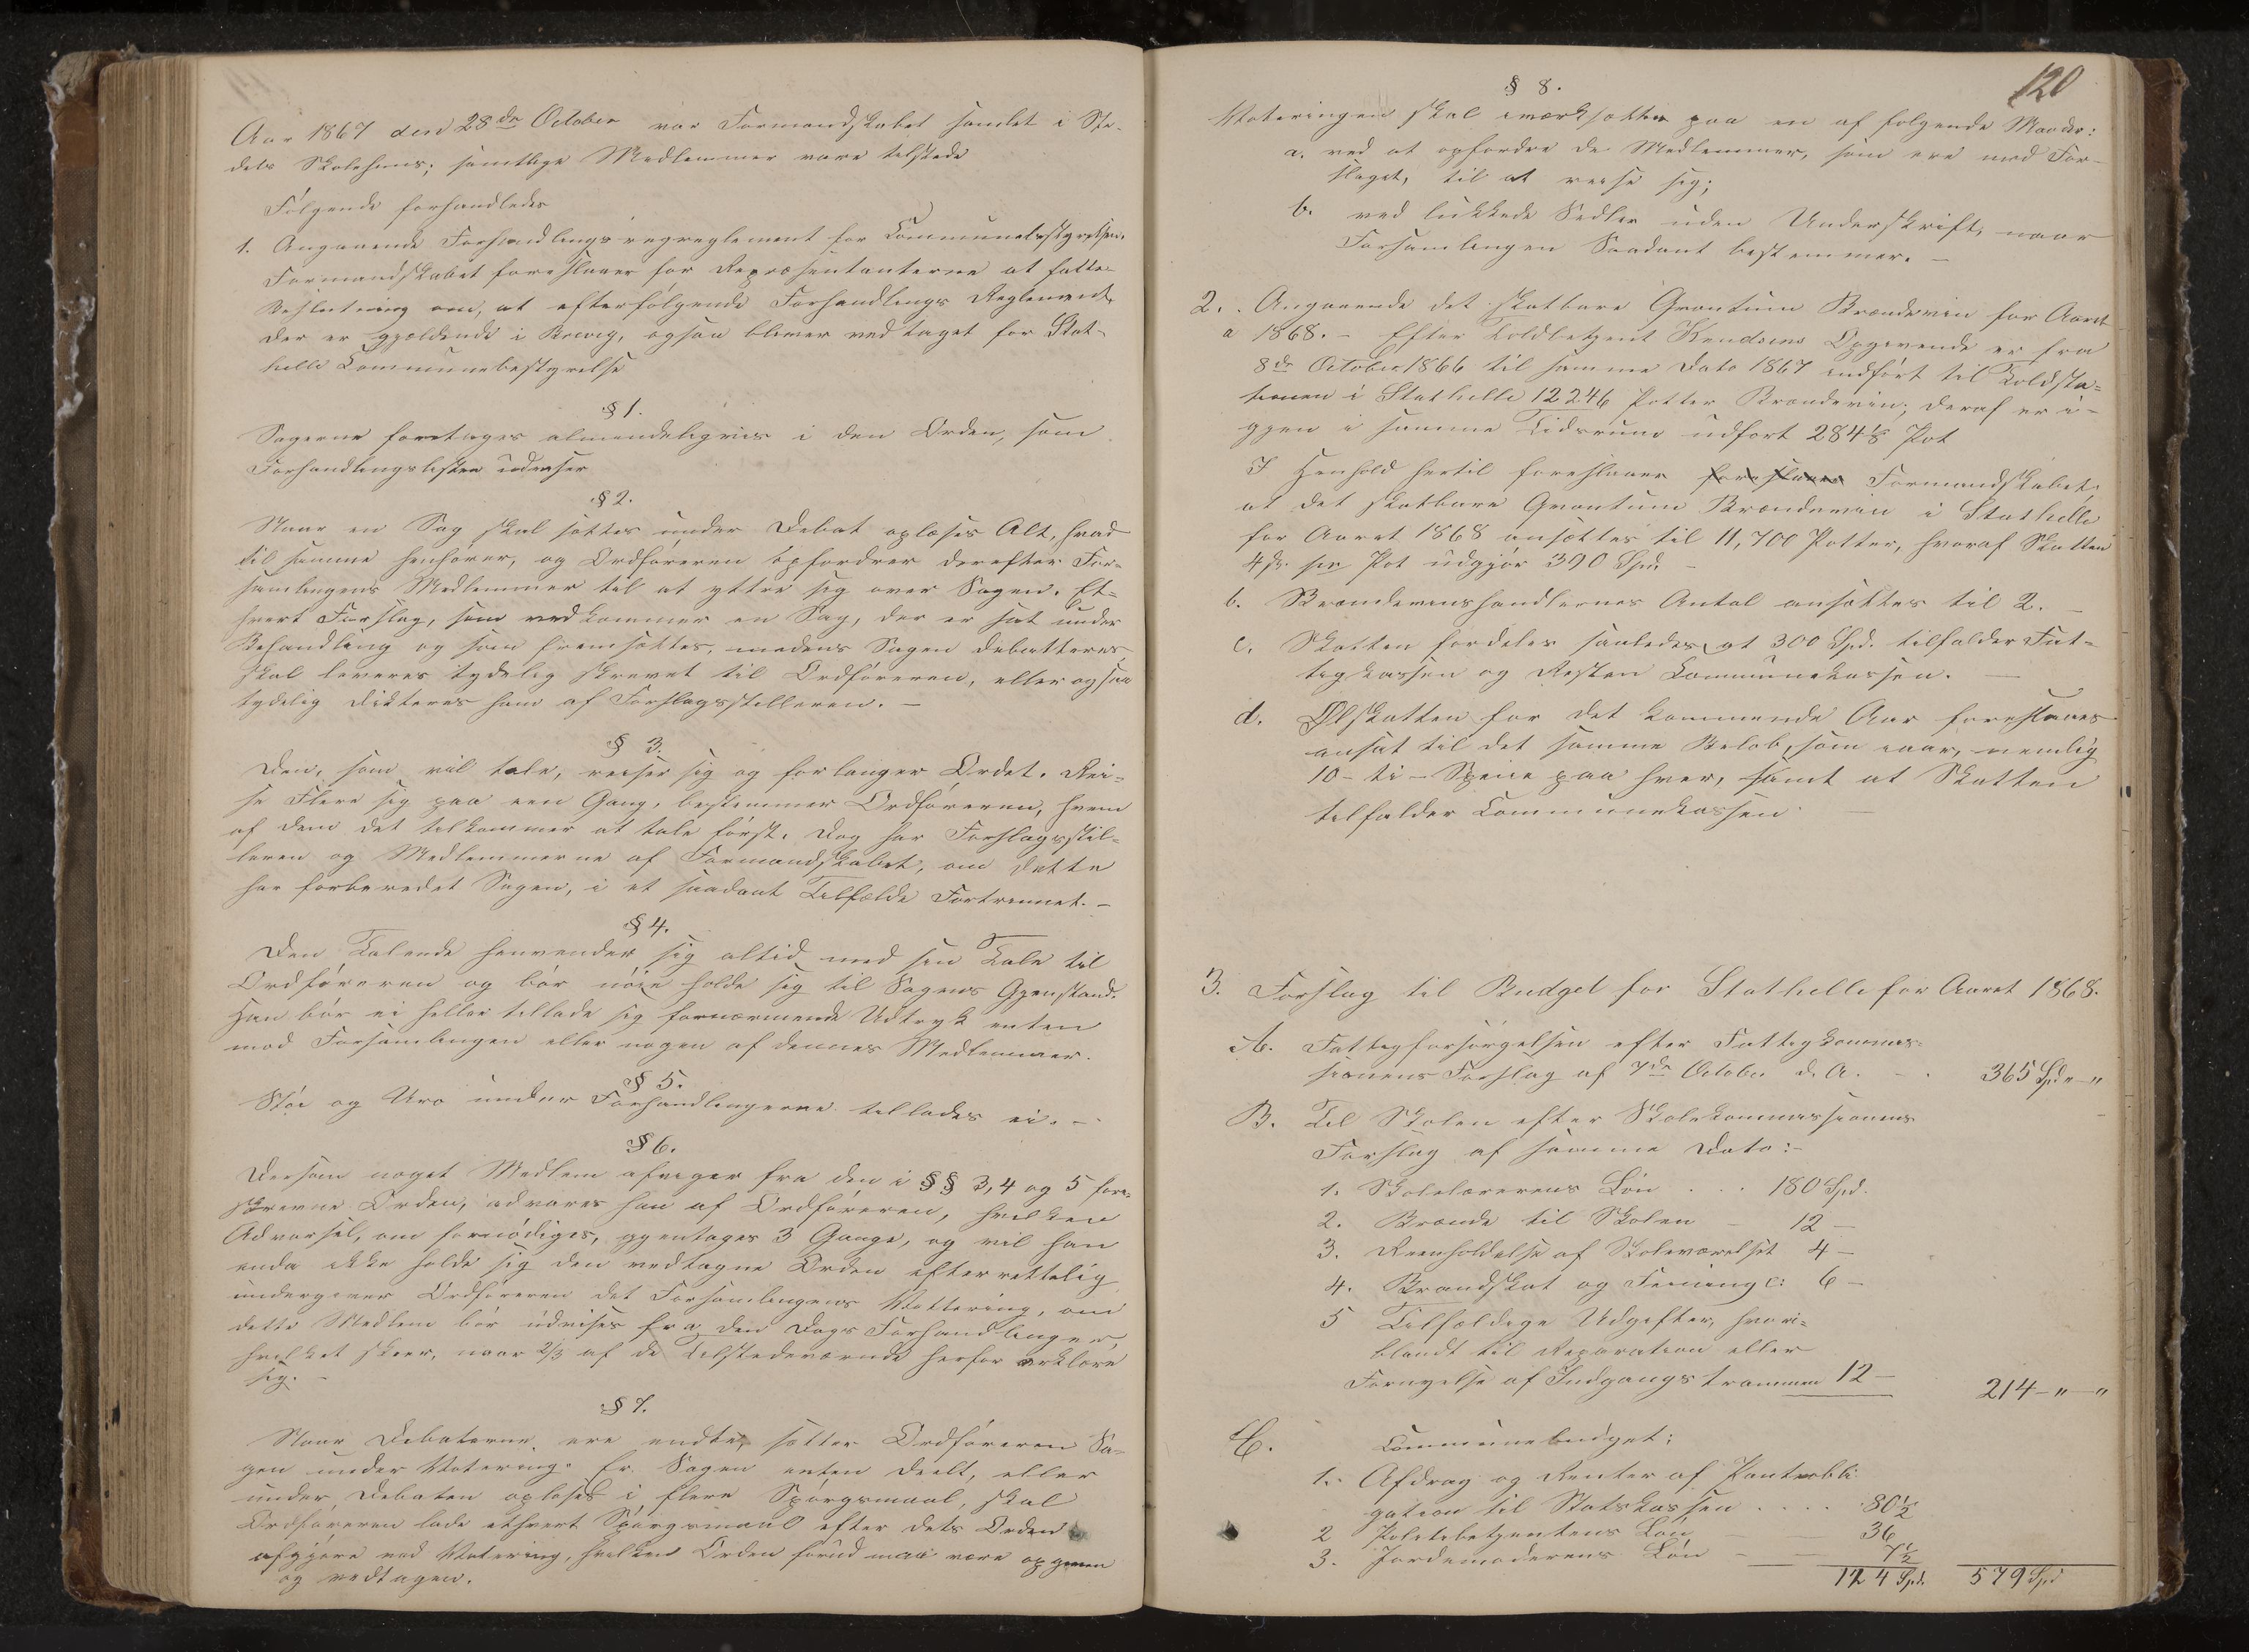 Aar 1867 den 28de October var Formandskabet samlet i Ste-
dets Skolehuus; samtlige Medlemmer vare tilstede
Følgende forhandledes
1. Angaaende Forhandlingsreglement for Communebestyrelsen.
Formandskabet foreslaaer for Repræsentanterne at fatte
Beslutning om, at efterfølgende Forhandlings Reglement,
der er gjældende i Brevig, ogsaa bliver vedtaget for Stat-
helle Communebestyrelse
§ 1.
Sagerne foretages almindeligvis i den Orden, som
Forhandlingslisten udviser
§ 2.
Naar en Sag skal sættes under Debat oplæses Alt, hvad
til samme henhører, og Ordføreren opfordrer derefter For-
samlingens Medlemmer til at yttre sig over Sagen. Et-
hvert Forslag, som vedkommer en Sag, der er sat under
Behandling og som fremsættes, medens Sagen debatteres,
skal leveres tydelig skrevet til Ordføreren, eller ogsaa
tydelig dikteres ham af Forslagsstilleren. –
§ 3.
Den, som vil tale, reiser sig og forlanger Ordet. Rei-
se Flere sig paa een Gang, bestemmer Ordføreren, hvem
af dem det tilkommer at tale først. Dog har Forslagsstil-
leren og Medlemmerne af Formandskabet, om dette
har forberedet Sagen, i et saadant Tilfælde Fortrinnet. –
§ 4.
Den Talende henvender sig altid med sin Tale til
Ordføreren og bør nøie holde sig til Sagens Gjenstand.
Han bør ei heller tillade sig fornærmende Udtryk enten
mod Forsamlingen eller nogen af dennes Medlemmer.
§ 5.
Støi og Uro under Forhandlingerne tillades ei. –
§ 6.
Dersom noget Medlem afviger fra den i §§ 3, 4 og 5 fore-
skrevne Orden, advares han af Ordføreren, hvilken
Advarsel, om fornødiges, gjentages 3 Gange, og vil han
enda ikke holde sig den vedtagne Orden efterrettelig
undergiver Ordføreren det Forsamlingens Vottering, om
dette Medlem bør udvises fra den Dags Forhandlinger,
hvilket skeer, naar 2/3 af de Tilstedeværende herfor erklære
sig. –
§ 7.
Naar Debatterne ere endte, sætter Ordføreren Sa-
gen under Votering. Er Sagen enten deelt, eller
under Debatten opløset i flere Spørgsmaal, skal
Ordføreren lade ethvert Spørgsmaal efter dets Orden
afgjøre ved Votering, hvilken Orden forud maa være opgiven
og vedtagen.
120
§ 8.
Voteringen skal iværksættes paa en af følgende Maader:
a. ved at opfordre de Medlemmer, som ere med For-
slaget, til at reise sig;
b. ved lukkede Sedler uden Underskrift, naar
Forsamlingen Saadant bestemmer. –
2. Angaaende det skatbare Qvantum Brændeviin for Aaret
a 1868. – Efter Toldbetjent Knudsens Opgivende er fra
8de October 1866 til samme Dato 1867 indført til Toldsta-
tionen i Stathelle 12246 Potter Brændeviin; deraf er i-
gjen i samme Tidsrum udført 284 1/8 Pot
I Henhold hertil foreslaaer foreslaaer Formandskabet
at det skatbare Qvantum Brændeviin i Stathelle
for Aaret 1868 ansættes til 11,700 Potter, hvoraf Skatten
4 ß. pr Pot udgjør 390 Spd. –
b. Brændeviinshandlernes Antal ansættes til 2. –
c. Skatten fordeles saaledes, at 300 Spd. tilfalder Fat-
tigkassen og Resten Communekassen. –
d. Ølskatten for det kommende Aar foreslaaes
ansat til det samme Beløb, som iaar, nemlig
10 – ti – Specie paa hver, samt at Skatten
tilfalder Communekassen –
3. Forslag til Budget for Stathelle for Aaret 1868.
A. Fattigforsørgelsen efter Fattigkommis-
sionens Forslag af 7de October d. A. - - 365 Spd " – "
B. Til Skolen efter Skolekommissionens
Forslag af samme Dato: –
1. Skolelærerens Løn . . . 180 Spd.
2. Brænde til Skolen – 12 –
3. Reenholdelse af Skoleværelset 4 –
4. Brandskat og Feining c: 6 –
5 Tilfældige Udgifter, hvori-
blandt til Reparation eller
Fornyelse af Indgangstrammen 12 – 214 – " – "
C. Communebudget:
1. Afdrag og Renter af Pantobli-
gation til Statskassen . . . . 80 1/2
2 Politibetjentens Løn – – 36
3. Jordemoderens Løn – – 7 1/2
124 Spd. 579 Spd